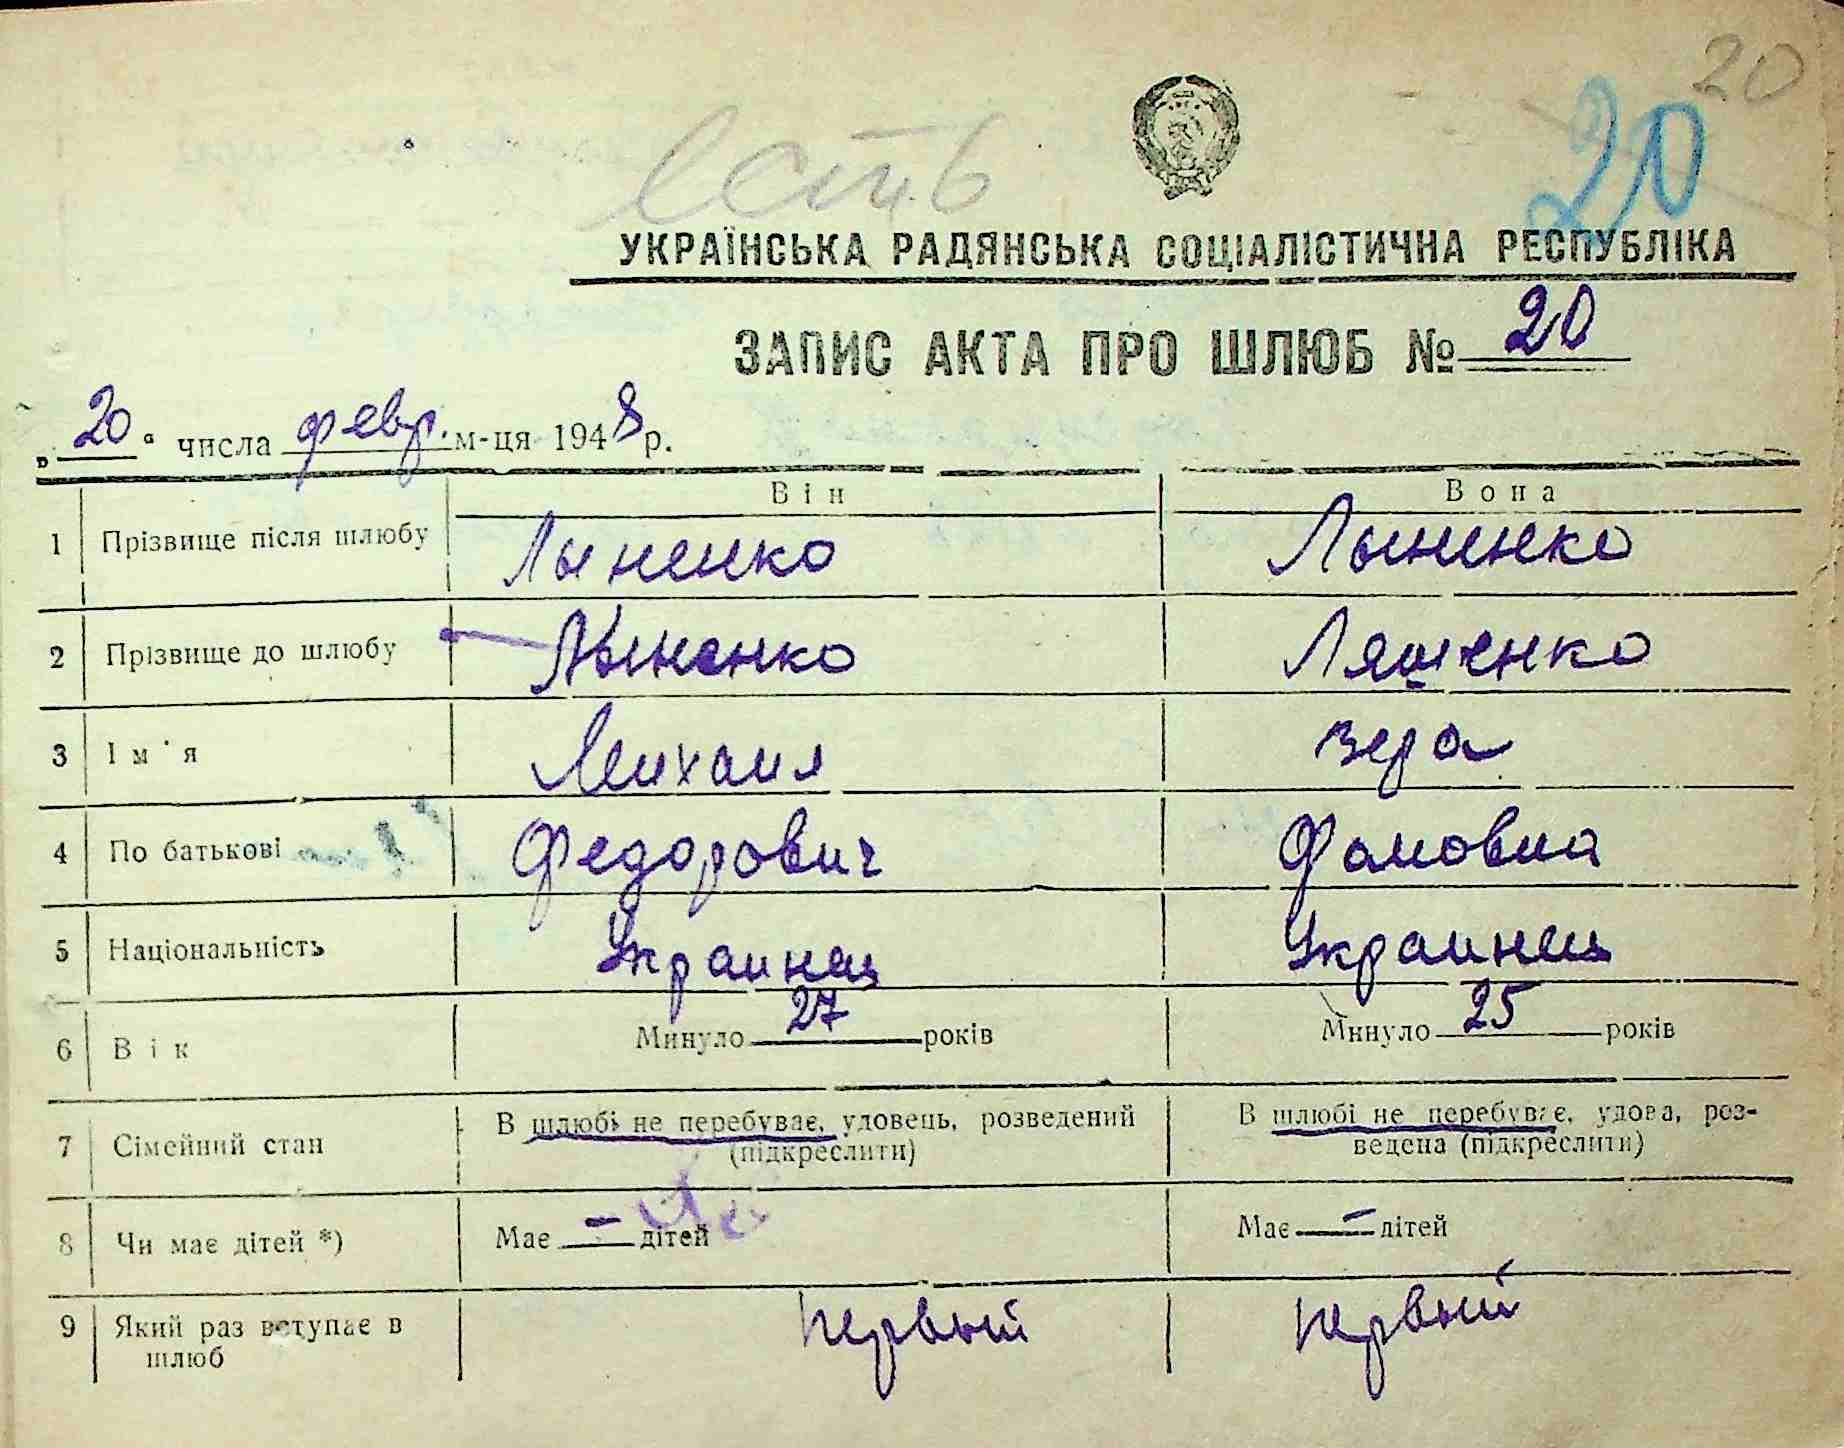 20
есть
20
УКРАЇНСЬКА РАДЯНСЬКА СОЦІАЛІСТИЧНА РЕСПУБЛІКА
ЗАПИС АКТА ПРО ШЛЮБ № 20
„20“ числа февр. м-ця 1948 р.
Він Вона
1 Прізвище після шлюбу Лыненко Лыненко
2 Прізвище до шлюбу Лыненко Ляшенко
3 Ім'я Михаил Вера
4 По батькові Федорович Фомовна
5 Національність Украинец Украинец
6 Вік Минуло 27 років Минуло 25 років
7 Сімейний стан В шлюбі не перебуває, удовець, розведений (підкреслити) В шлюбі не перебуває, удова, роз-
ведена (підкреслити)
8 Чи має дітей *) Має – дітей Має – дітей
9 Який раз вступає в шлюб первый первый